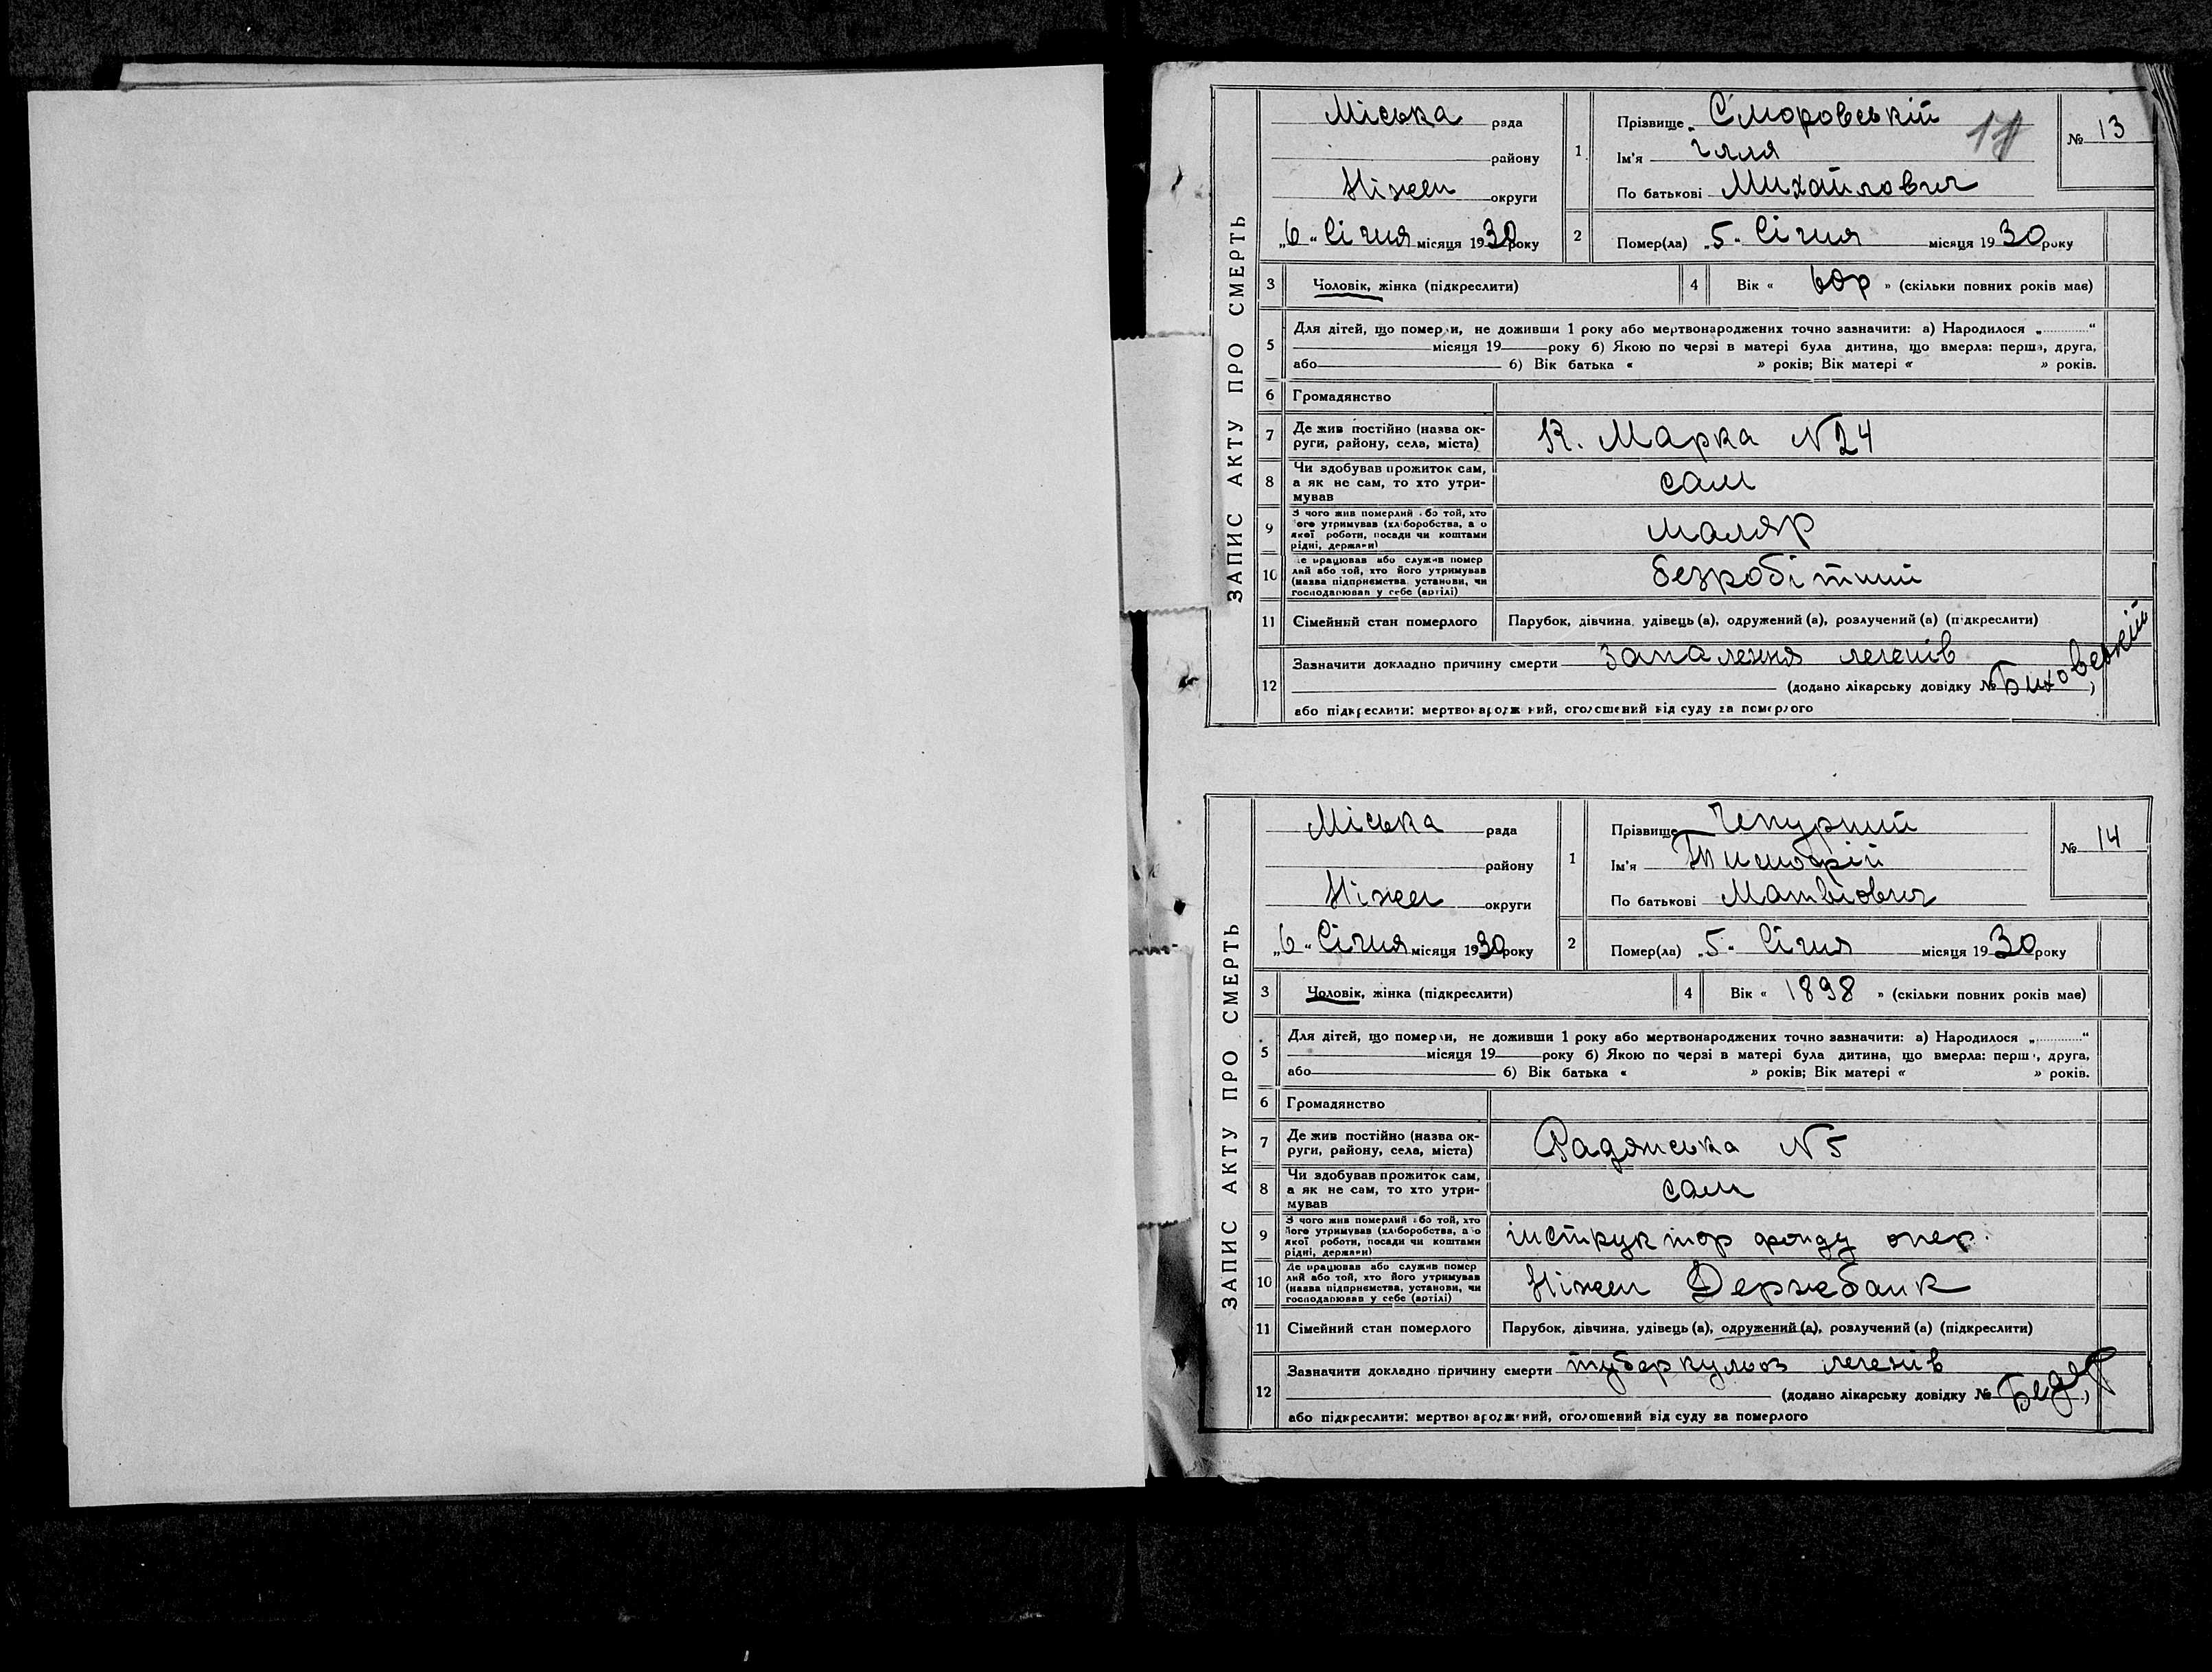 ЗАПИС АКТУ ПРО СМЕРТЬ
Міська рада
району
Ніжен округи
„6“ Січня місяця 1930 року
1
Прізвище Сморовській
Ім'я Ілля
По батькові Михайлович
11
№ 13
2
Помер(ла) „5“ Січня місяця 1930 року
3 Чоловік, жінка (підкреслити)
4 Вік « 60р » (скільки повних років має)
5
Для дітей, що померли, не доживши 1 року або мертвонароджених точно зазначити: а) Народилося „ “
місяця 19 року б) Якою по черзі в матері була дитина, що вмерла: перша, друга,
або б) Вік батька « » років; Вік матері « » років.
6 Громадянство
7 Де жив постійно (назва ок-
руги, району, села, міста)
К. Марка №24
8 Чи здобував прожиток сам,
а як не сам, то хто утри-
мував
сам
9 З чого жив померлий або той, хто
його утримував (хліборобства, а о
якої роботи, посади чи коштами
рідні, держави)
маляр
10 Де працював або служив помер
лий або той, хто його утримував
(назва підприємства, установи, чи
господарював у себе (артілі)
безробітний
11 Сімейний стан померлого
Парубок, дівчина, удівець (а), одружений (а), розлучений (а) (підкреслити)
12 Зазначити докладно причину смерти запалення легенів
(додано лікарську довідку № Биховській)
або підкреслити: мертвонароджений, оголошений від суду за померлого
ЗАПИС АКТУ ПРО СМЕРТЬ
Міська рада
району
Ніжен округи
„6“ Січня місяця 1930 року
1
Прізвище Чепурний
Ім'я Тимофій
По батькові Матвіович
№ 14
2
Помер(ла) „5“ Січня місяця 1930 року
3 Чоловік, жінка (підкреслити)
4 Вік « 1898 » (скільки повних років має)
5
Для дітей, що померли, не доживши 1 року або мертвонароджених точно зазначити: а) Народилося „ “
місяця 19 року б) Якою по черзі в матері була дитина, що вмерла: перш , друга,
або б) Вік батька « » років; Вік матері « » років.
6 Громадянство
7 Де жив постійно (назва ок-
руги, району, села, міста)
Радянська №5
8 Чи здобував прожиток сам,
а як не сам, то хто утри-
мував
сам
9 З чого жив померлий або той, хто
його утримував (хліборобства, а о
якої роботи, посади чи коштами
рідні, держави)
інструктор фонду опер.
10 Де працював або служив помер
лий або той, хто його утримував
(назва підприємства, установи, чи
господарював у себе (артілі)
Ніжен Держбанк
11 Сімейний стан померлого
Парубок, дівчина, удівець (а), одружений (а), розлучений (а) (підкреслити)
12 Зазначити докладно причину смерти туберкульоз легенів
(додано лікарську довідку № )
або підкреслити: мертвонароджений, оголошений від суду за померлого